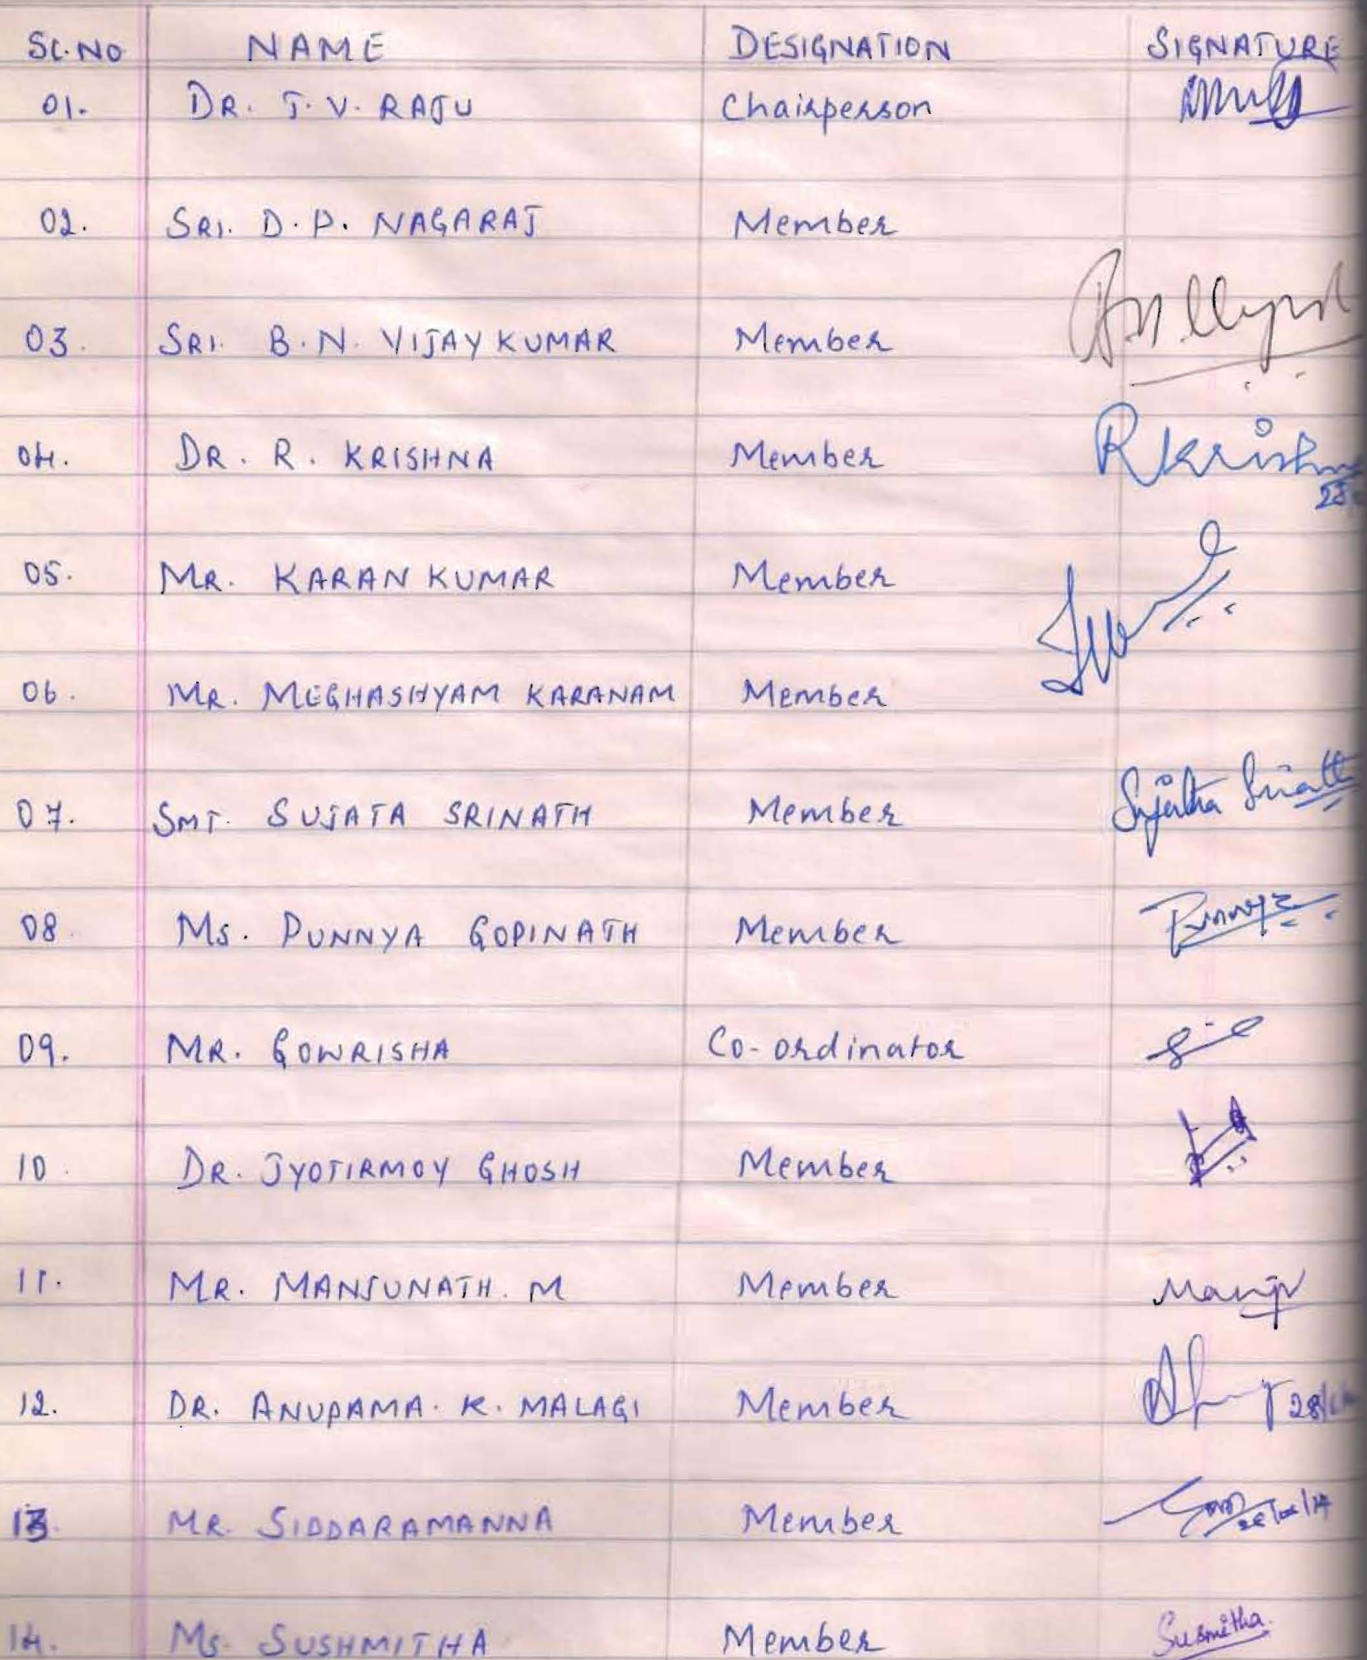 SL.NO NAME DESIGNATION SIGNATURE
01. DR. T. V. RAJU Chairperson
02. SRI. D. P. NAGARAJ Member
03. SRI. B. N. VIJAY KUMAR Member
04. DR. R. KRISHNA Member R Krishna
05. MR. KARAN KUMAR Member
06. MR. MEGHASHYAM KARANAM Member
07. SMT. SUJATA SRINATH Member Sujatha Srinath
08. MS. PUNNYA GOPINATH Member Punnya
09. MR. GOWRISHA Co-ordinator
10. DR. JYOTIRMOY GHOSH Member
11. MR. MANJUNATH. M Member Manju
12. DR. ANUPAMA. K. MALAGI Member
13. MR. SIDDARAMANNA Member
14. MS. SUSHMITHA Member Susmitha